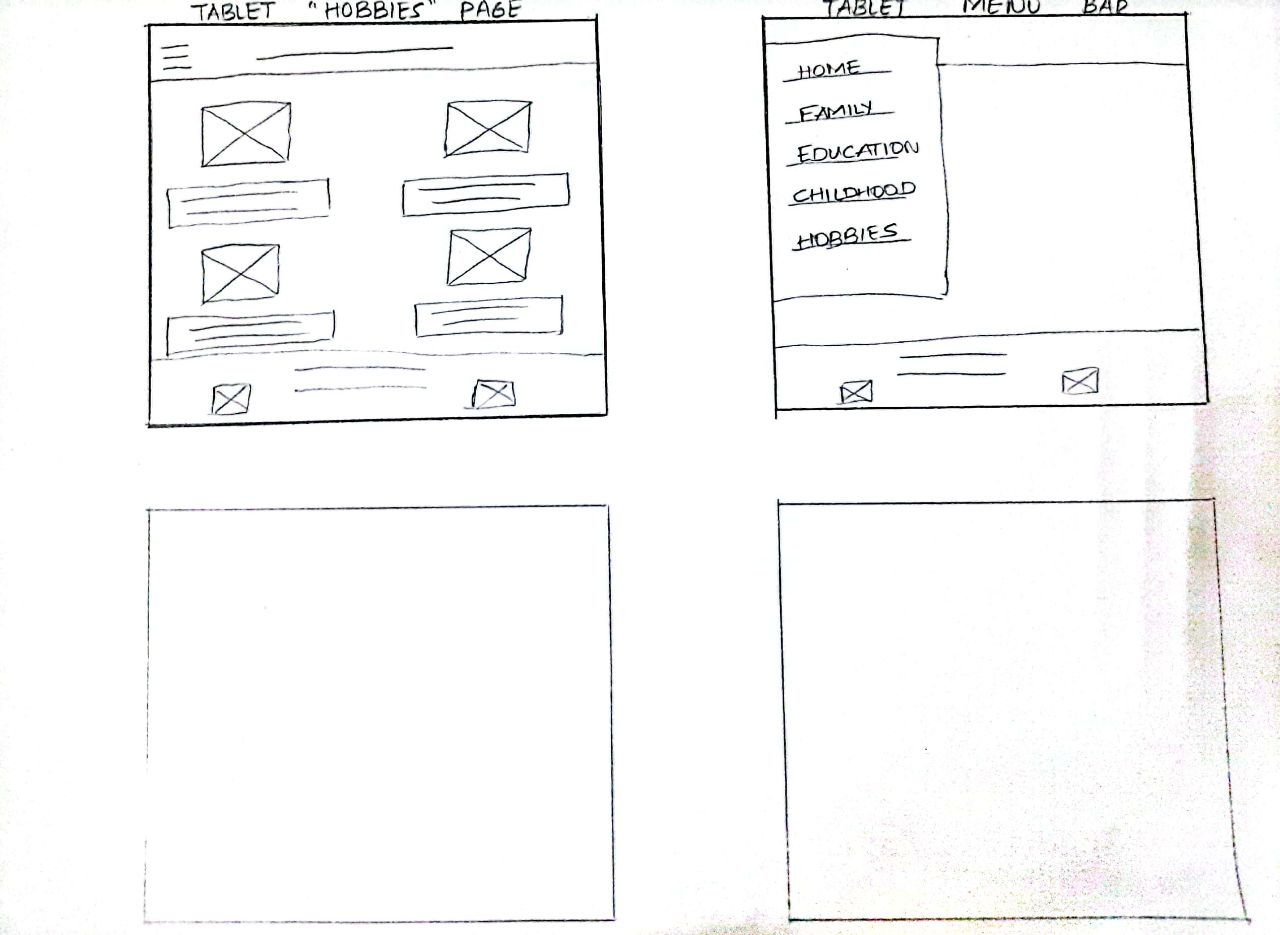 TABLET "HOBBIES" PAGE
TABLET MENU BAR
HOME
FAMILY
EDUCATION
CHILDHOOD
HOBBIES